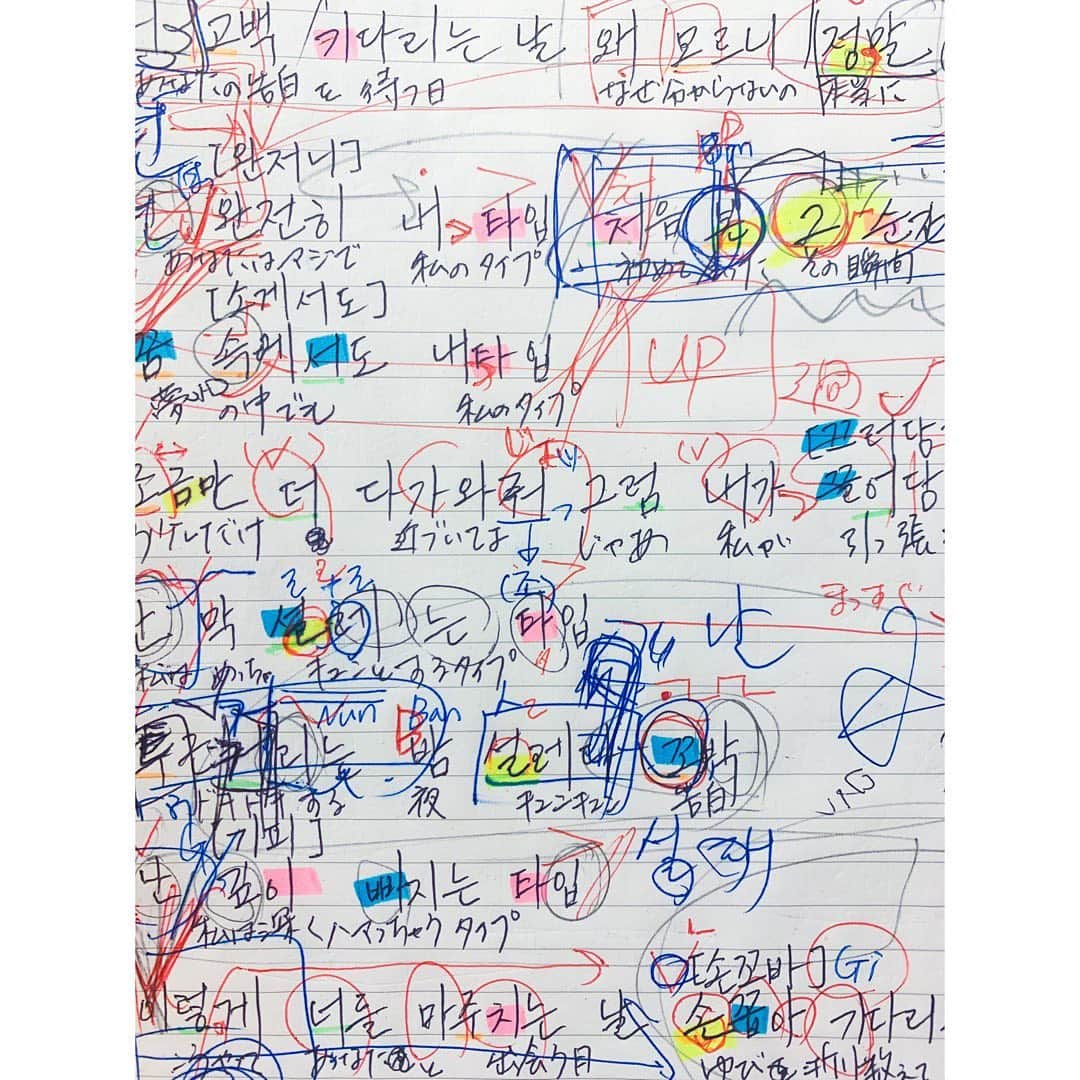 고백 기다리는 날 왜 모르니 정말
の告白を待つ日 なぜ分からないの
[완저니] Ban
완전히 내 타입 처음 본 2 순간
あなたはマジで 私のタイプ 初めて その瞬間
[소게서도]
꿈 속에서도 내 타입 UP 3回
夢 の中でも 私のタイプ [끄러당
조금만 더 다가와줘 그럼 내가 끌어당
だけ 近づいてよ じゃあ 私が 引っ張
난 막 설레는 타입 나 まっすぐ
私は めっちゃ キュンとするタイプ
Nun Ban
는 밤 설레 고백
ドキドキする 夜 キュンキュン 告白
[기피]
난 깊이 빠지는 타입
私は深くハマっちゃうタイプ
[손꼬바] Gi
이렇게 너를 마주치는 날 손꼽아 기다리
あなたと 出会う日 ゆび 折り数えて